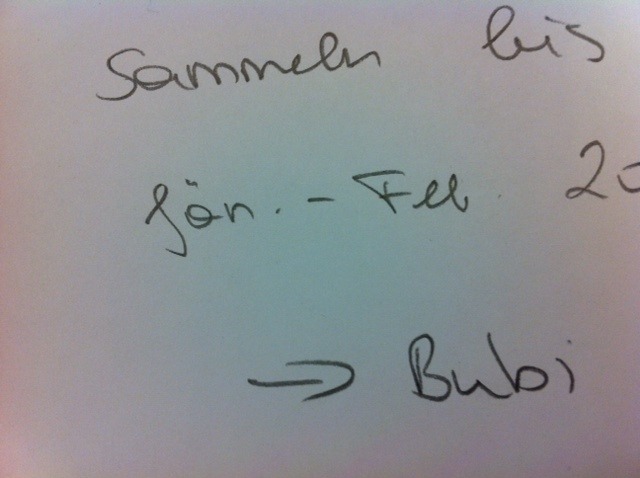 Sammeln bis
Jän. - Feb. 20
→ Bubi